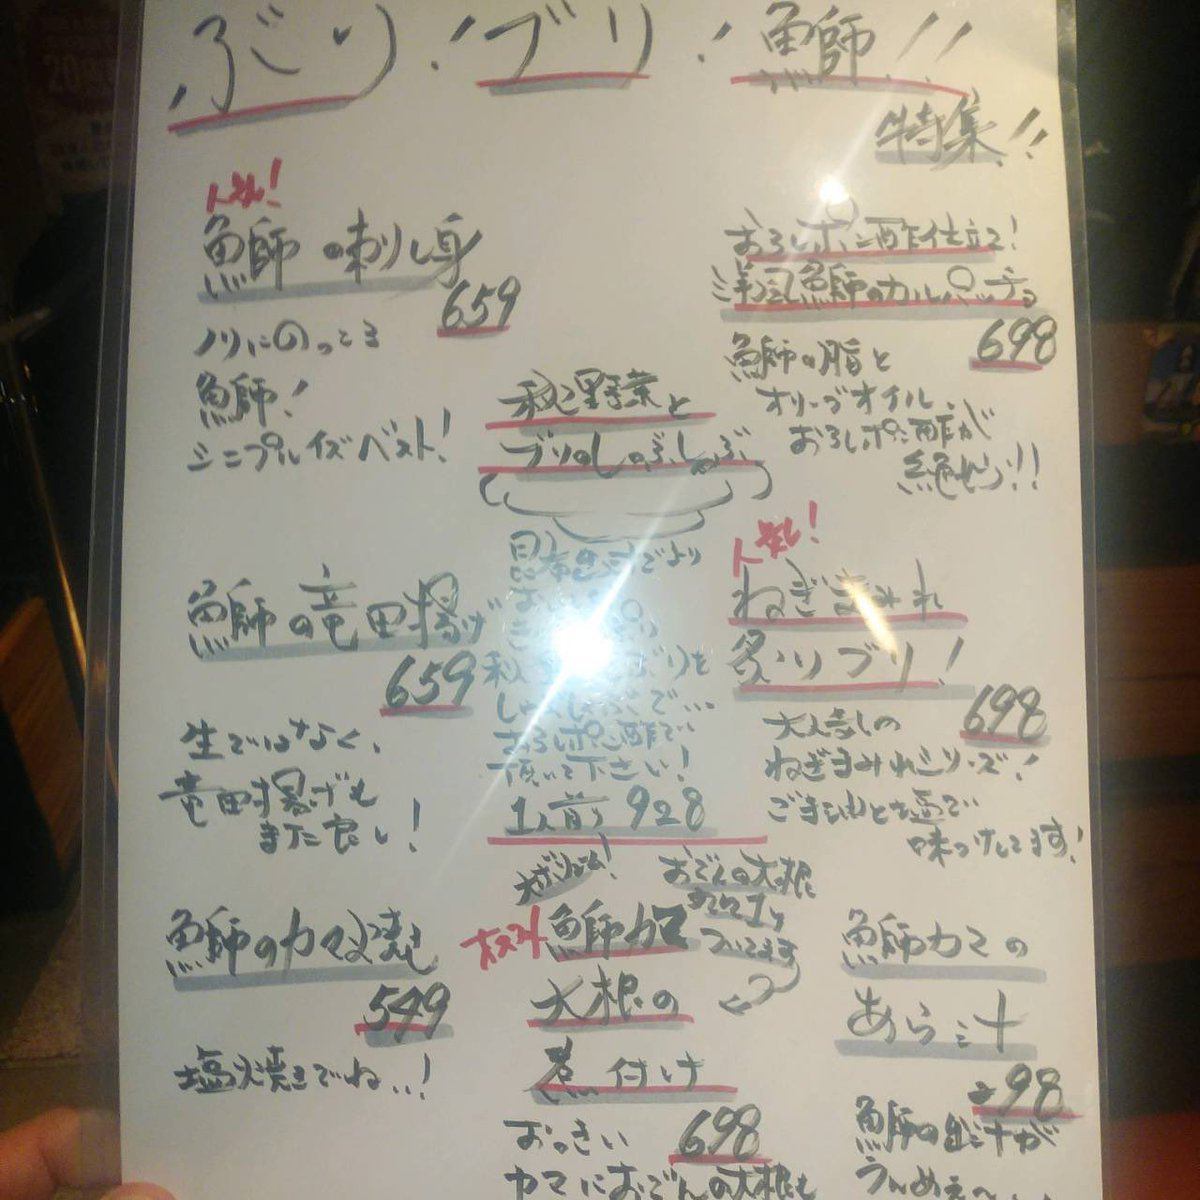 ぶり！ブリ！鰤！！
特集！！
人気！
鰤の刺し身
659
ノリにのってる
鰤！
シンプルイズベスト！
おろしポン酢仕立て！
洋風鰤のカルパッチョ
698
鰤の脂と
オリーブオイル、
おろしポン酢が
絶妙！！
秋野菜と
ブリのしゃぶしゃぶ
昆布出汁でより
しゃぶしゃぶで…
おろしポン酢で
頂いて下さい！
1人前 928
鰤の竜田揚げ
659
生ではなく、
竜田揚げも
また良し！
人気！
ねぎまみれ
炙りブリ！
698
大人気の
ねぎまみれシリーズ！
ごま油と塩で
味つけしてます！
鰤のカマ塩焼き
549
塩焼きでね…！
おでんの大根
ついてます
オススメ
鰤カマ
大根の
煮付け
698
おっきい
カマにおでんの大根も
鰤カマの
あら汁
98
鰤の出汁が
うんめぇ〜